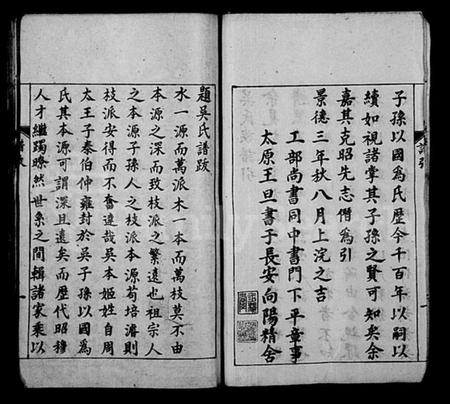 子孫以國爲氏歷今千百年以嗣以
續如視諸掌其子孫之賢可知矣余
嘉其克昭先志僭爲引
景德三年秋八月上浣之吉
工部尚書同中書門下平章事
太原王旦書于長安向陽精舍
題吳氏譜跋
水一源而萬派木一本而萬枝莫不由
本源之深而致枝派之繁遠也祖宗人
之本源子孫人之枝派本源苟培濬則
枝派安得而不奮達哉吳本姬姓自周
太王子泰伯仲雍封於吳子孫以國爲
氏其本源可謂深且遠矣而歷代昭穆
人才繼躅暸然世系之間輯諸家乘以